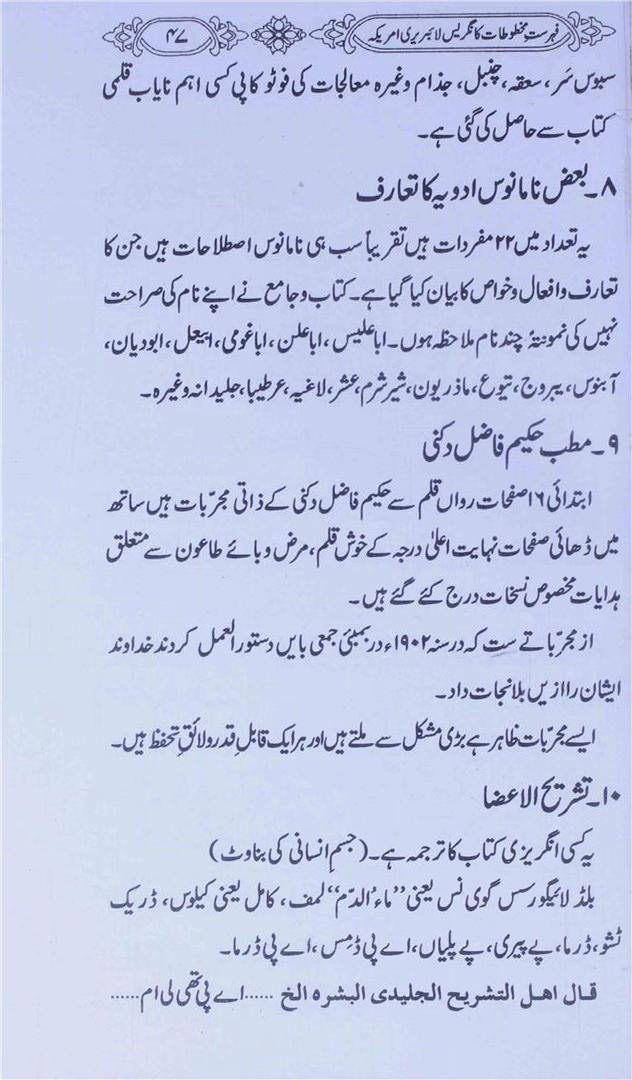 فہرستِ مخطوطات کانگریس لائبریری امریکہ
۴۷
سبوس سَر، سعفہ، چنبل، جذام وغیرہ معالجات کی فوٹو کاپی کسی اہم نایاب قلمی
کتاب سے حاصل کی گئی ہے۔
۸۔ بعض نامانوس ادویہ کا تعارف
یہ تعداد میں ۲۲ مفردات ہیں تقریباً سب ہی نامانوس اصطلاحات ہیں جن کا
تعارف و افعال و خواص کا بیان کیا گیا ہے۔ کتاب و جامع نے اپنے نام کی صراحت
نہیں کی نمونتۂ چند نام ملاحظہ ہوں۔ اباعلیس، اباعلن، اباغومی، ابیعل، ابودیان،
آبنوس، یبروج، تیوع، ماذریون، شیر شرم، عشر، لاغیہ، عرطیبا، جلیدانہ وغیرہ۔
۹۔ مطب حکیم فاضل دکنی
ابتدائی ۱۶ صفحات رواں قلم سے حکیم فاضل دکنی کے ذاتی مجرّبات ہیں ساتھ
میں ڈھائی صفحات نہایت اعلیٰ درجہ کے خوش قلم، مرض وبائے طاعون سے متعلق
ہدایات مخصوص نسخات درج کئے گئے ہیں۔
از مجرّباتے ست کہ در سنہ ۱۹۰۲ء در بمبئی جمعی بایں دستور العمل کردند خداوند
ایشان را ازیں بلا نجات داد۔
ایسے مجرّبات ظاہر ہے بڑی مشکل سے ملتے ہیں اور ہر ایک قابلِ قدر و لائقِ تحفظ ہیں۔
۱۰۔ تشریح الاعضا
یہ کسی انگریزی کتاب کا ترجمہ ہے۔ (جسمِ انسانی کی بناوٹ)
بلڈ لائیگورسس گوی نس یعنی ”ماءُ الدّم“ لمف، کامل یعنی کیلوس، ڈریک
ٹشو، ڈرما، بے پیری، بے پلیاں، اے پی ڈمِس، اے پی ڈرما۔
قال اهل التشريح الجليدى البشره الخ ...... اے پی تھی لی ام ......